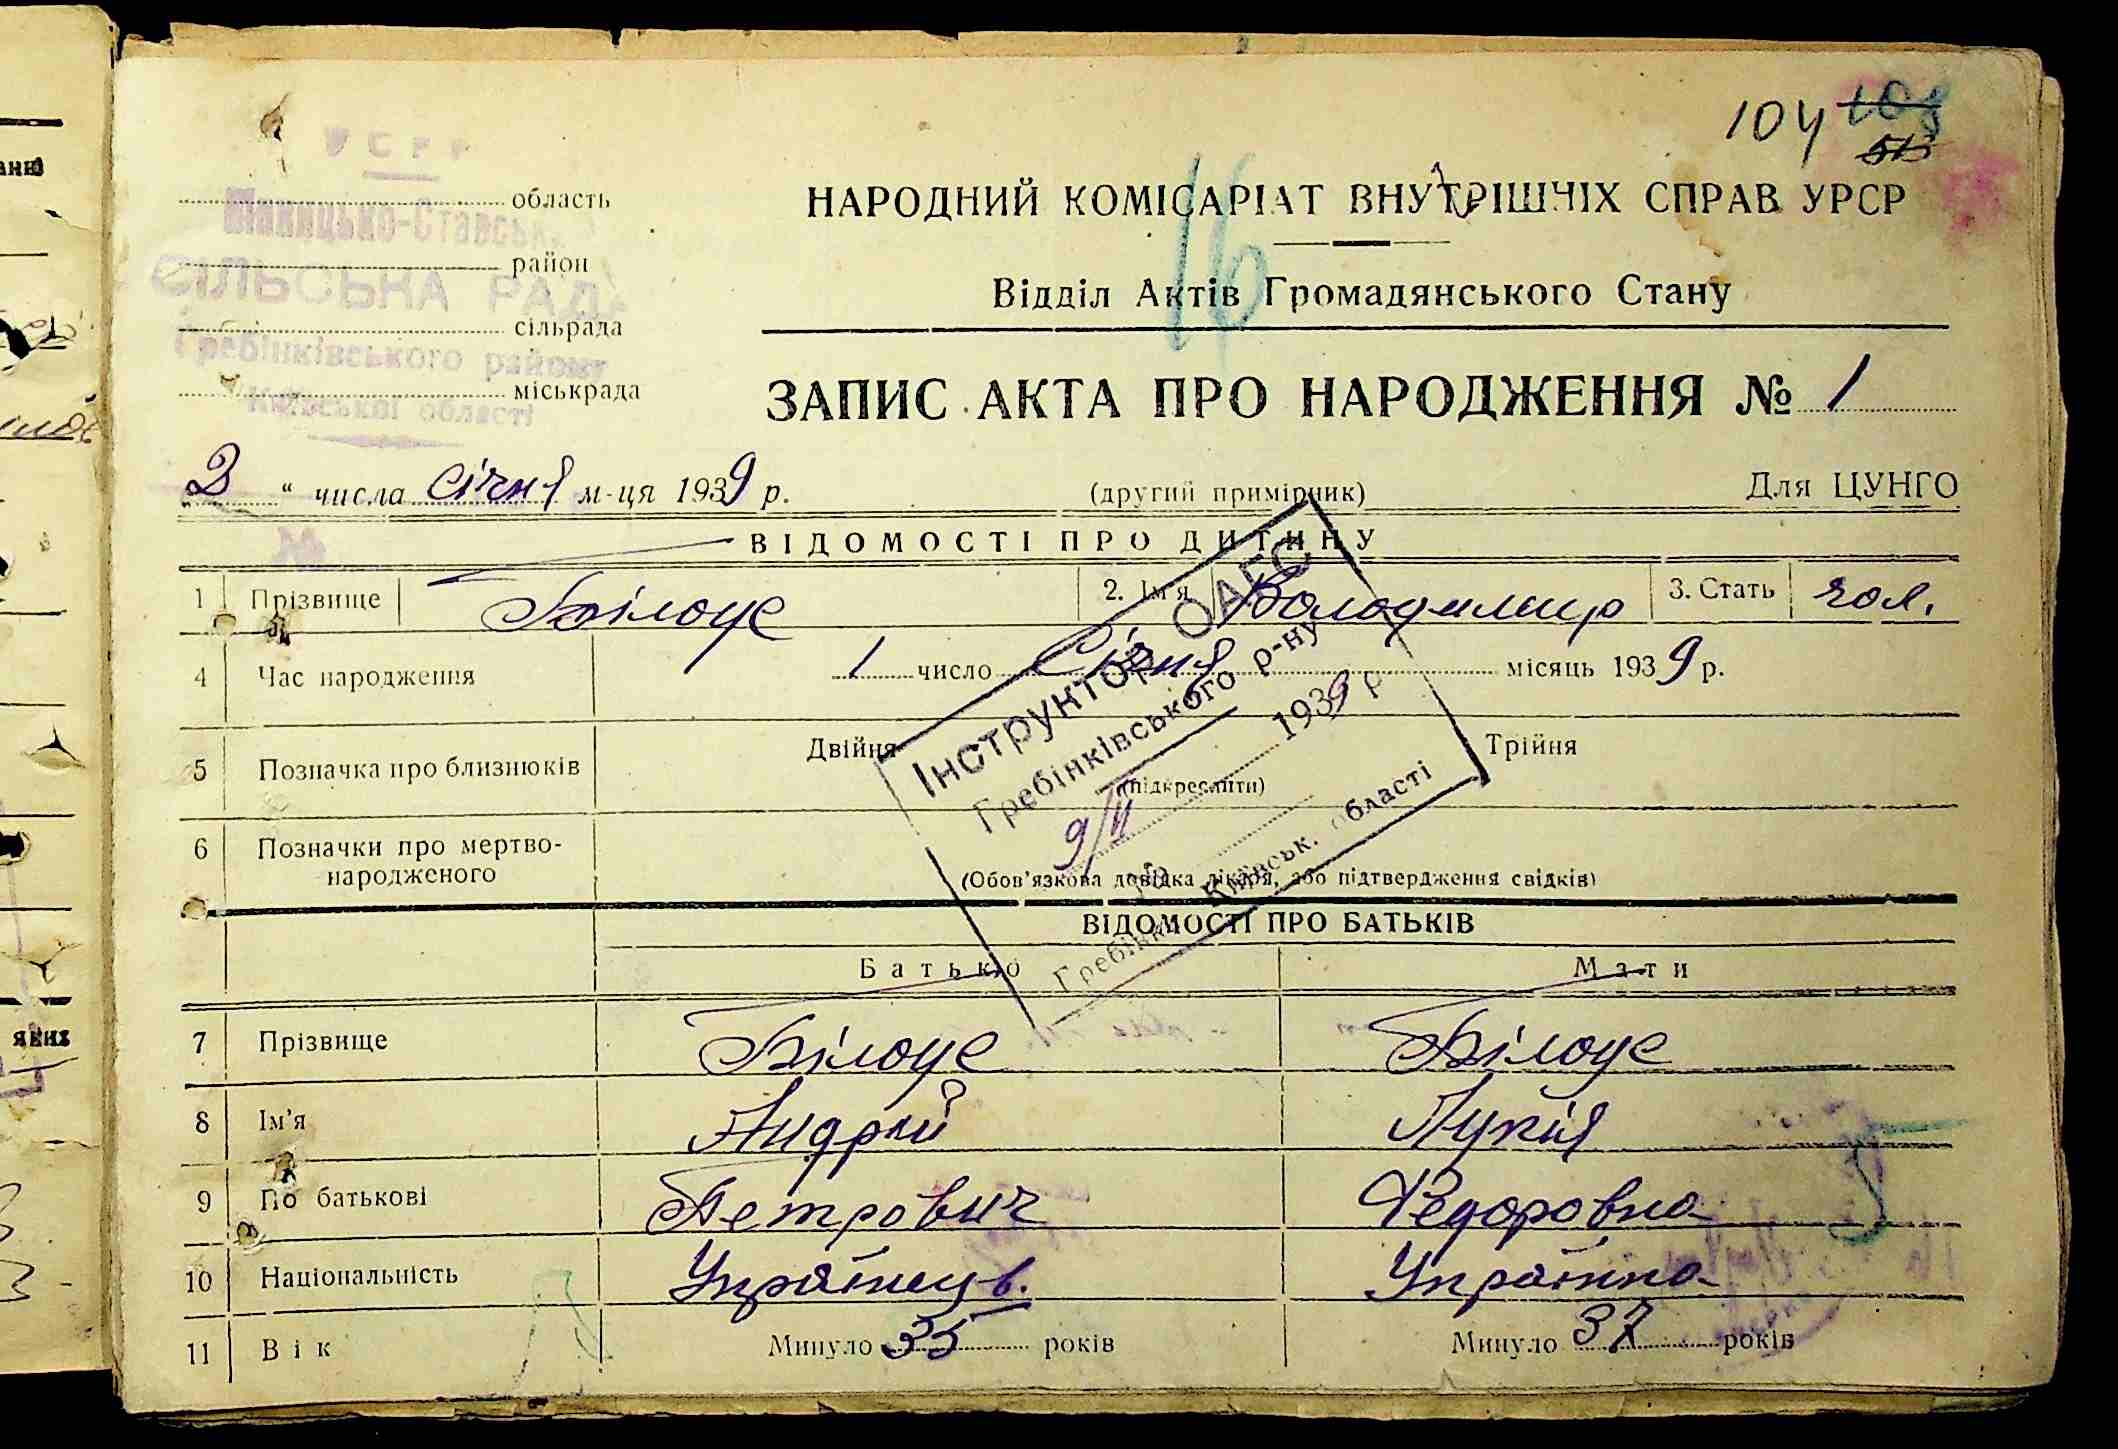 104 103
53
УСРР
область
Шницько-Ставська
район
СІЛЬСЬКА РАДА
сільрада
Гребінківського району
міськрада
Київської області
16
НАРОДНИЙ КОМІСАРІАТ ВНУТРІШНІХ СПРАВ УРСР
Відділ Актів Громадянського Стану
ЗАПИС АКТА ПРО НАРОДЖЕННЯ № 1
2 “ числа січня м-ця 1939 р.
(другий примірник)
Для ЦУНГО
№
ВІДОМОСТІ ПРО ДИТИНУ
1 Прізвище Білоус 2. Ім'я Володимир 3. Стать чол.
4 Час народження 1 число Січня місяць 1939 р.
5 Позначка про близнюків Двійня Трійня
(підкреслити)
6 Позначки про мертво-
народженого
(Обов'язкова довідка лікаря, або підтвердження свідків)
Інструктор ОАГС
Гребінківського р-ну
9/II 1939 р
Гребінки Київськ. області
ВІДОМОСТІ ПРО БАТЬКІВ
Батько Мати
7 Прізвище Білоус Білоус
8 Ім'я Андрій Лукія
9 По батькові Петрович Федоровна
10 Національність Українець. Українка
11 Вік Минуло 35 років Минуло 37 років
яких